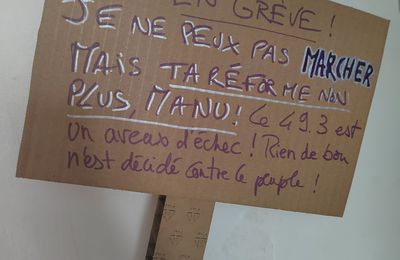 EN GRÈVE !
JE NE PEUX PAS MARCHER
MAIS TA RÉFORME NON
PLUS, MANU! Le 49.3 est
un aveu d'échec ! Rien de bon
n'est décidé contre le peuple !